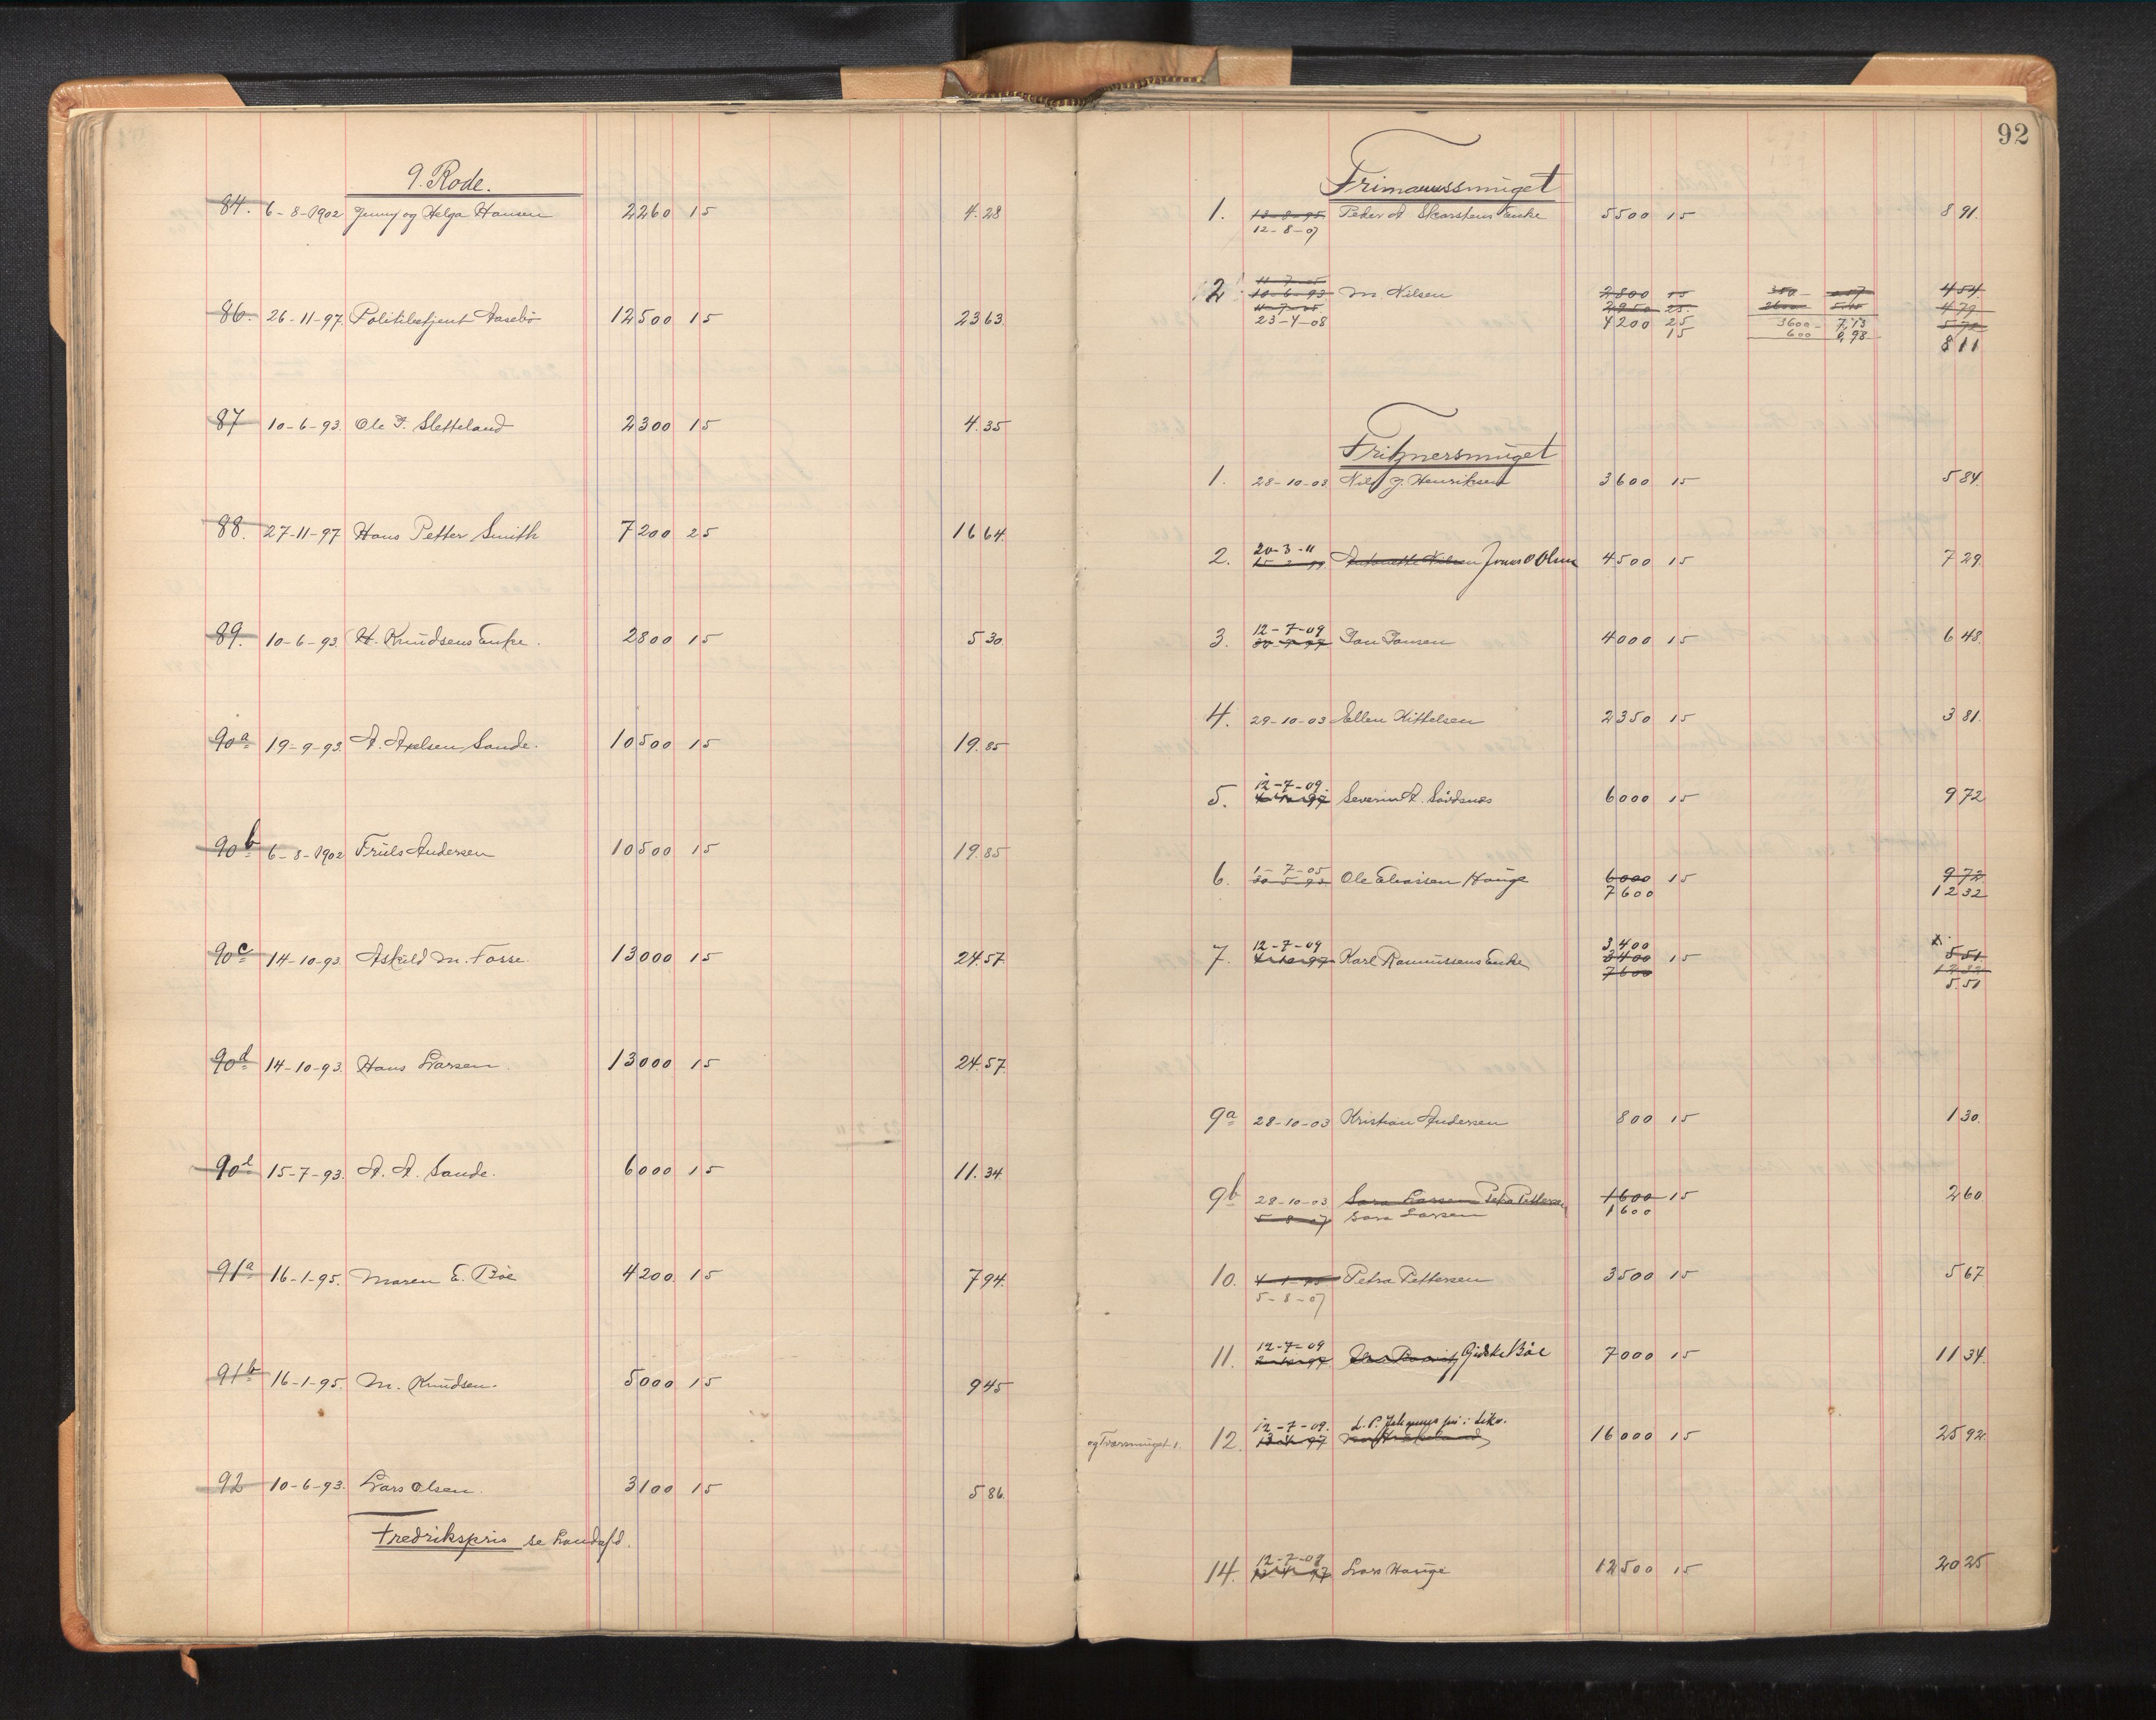 9. Rode.
84. 6-8-1902 Jenny og Helga Hansen 2260 15 4.28
86. 26-11-97 Politibetjent Aasebø 12500 15 23 63
87 10-6-93. Ole T. Sletteland 2300 15 4.35
88. 27-11-97 Hans Petter Smith 7200 25 16 64
89. 10-6-93. H. Knudsens Enke. 2800 15 5 30
90a 19-9-93. A. Axelsen Sande. 10500 15 19.85
90b 6-8-1902 Truls Andersen 10500 15 19.85
90c 14-10-93. Askild M. Fosse. 13000 15 24.57
90d 14-10-93. Hans Larsen. 13000 15 24.57
90e 15-7-93. A. A. Sande. 6000 15 11.34
91a 16-1-95. Maren E. Böe 4200 15 7 94.
91b 16-1-95. M. Knudsen. 5000 15 9 45
92 10-6-93. Lars Olsen. 3100 15 5 86.
Fredrikspris se Landafd.
92
Frimannssmuget
1. 13-8-95 Peder A Skarstens Enke 5500 15 8 91.
12-8-07
2 11-7-05
10-6-93 M. Nilsen 2800 15 350 4 54.
4-7-05. 2950 25. 2600 4 79
23-4-08 4200 25 3600 7,13 5 72
15 600 0,98 8 11
Fritznersmuget
1. 28-10-03 Nils J. Henriksen 3600 15 5 84.
20-3-11
2. Antonette Nilsen Jonas O Olsen 4500 15 7 29.
12-7-09
3. Jan Jansen 4000 15 6 48.
4. 29-10-03 Ellen Kittelsen 2350 15 3 81.
12-7-09.
5. Severin A. Sördsnes 6000 15 9 72
1-7-05
6. 30-5-93 Ole Eliassen Hauge 6000 15 9 72
7600 12 32
12-7-09 3400 x
7. Karl Rasmussens Enke 3400 15 5 51.
7600 12 32
5.51
9a 28-10-03 Kristian Andersen 800 15 1 30.
9b 28-10-03 Sara Larsen Petra Pettersen 1600 15 2 60
5-8-07 Sara Larsen 1600
10. 4-1-95 Petra Pettersen 3500 15 5 67
5-8-07
12-7-09
11. Gjert Böe 7000 15 11 34.
12-7-09.
og Tværsmuget 1. 12. 13-4-97 16000 15 25 92.
12-7-09
14. 13-4-97 Lars Hauge 12500 15 20 25